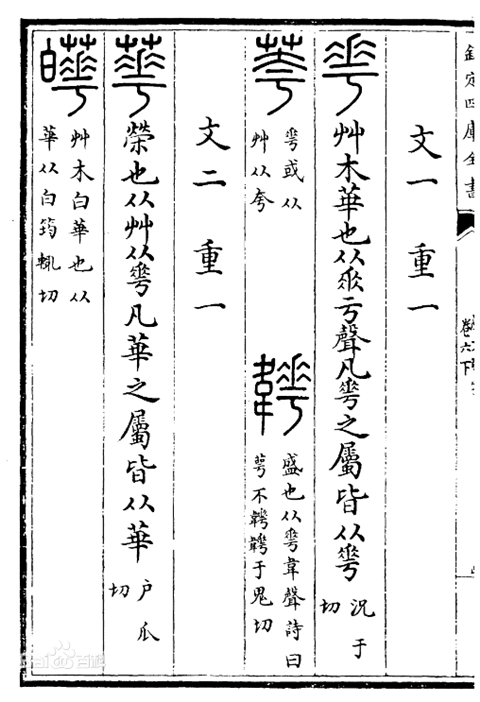 欽定四庫全書
卷六下
文一 重一
𠌶 艸木華也从𠂹亏聲凡𠌶之屬皆从𠌶 況于切
荂 𠌶或从艸从夸
韡 盛也从𠌶韋聲詩曰萼不韡韡于鬼切
文二 重一
華 榮也从艸从𠌶凡華之屬皆从華 戶瓜切
皣 艸木白華也从華从白筠輒切
Bai 百科